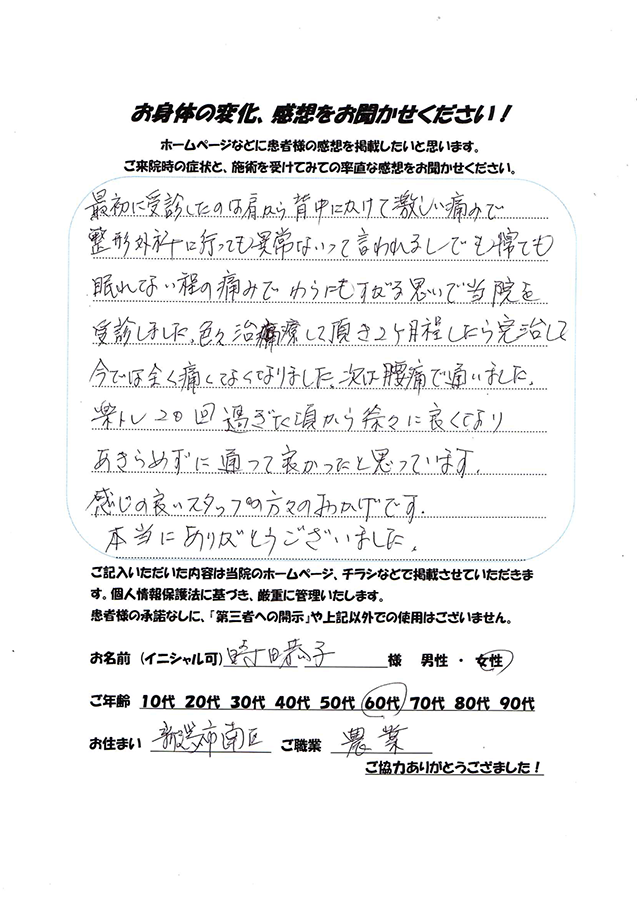 お身体の変化、感想をお聞かせください！
ホームページなどに患者様の感想を掲載したいと思います。
ご来院時の症状と、施術を受けてみての率直な感想をお聞かせください。
最初に受診したのは肩から背中にかけて激しい痛みで
整形外科に行っても異常ないって言われるしでも慴ても
眠れない程の痛みで わらにもすがる思いで当院を
受診しました。色々治療して頂き2ヶ月程したら完治して
今では全く痛くなくなりました。次は腰痛で通いました。
楽トレ20回過ぎた頃から徐々に良くなり
あきらめずに通って良かったと思っています。
感じの良いスタッフの方々のおかげです。
本当にありがとうございました。
ご記入いただいた内容は当院のホームページ、チラシなどで掲載させていただきま
す。個人情報保護法に基づき、厳重に管理いたします。
患者様の承諾なしに、「第三者への開示」や上記以外での使用はございません。
お名前（イニシャル可） 町田恭子 様 男性 ・ 女性
ご年齢 10代 20代 30代 40代 50代 60代 70代 80代 90代
お住まい 新潟市南区 ご職業 農業
ご協力ありがとうござました！